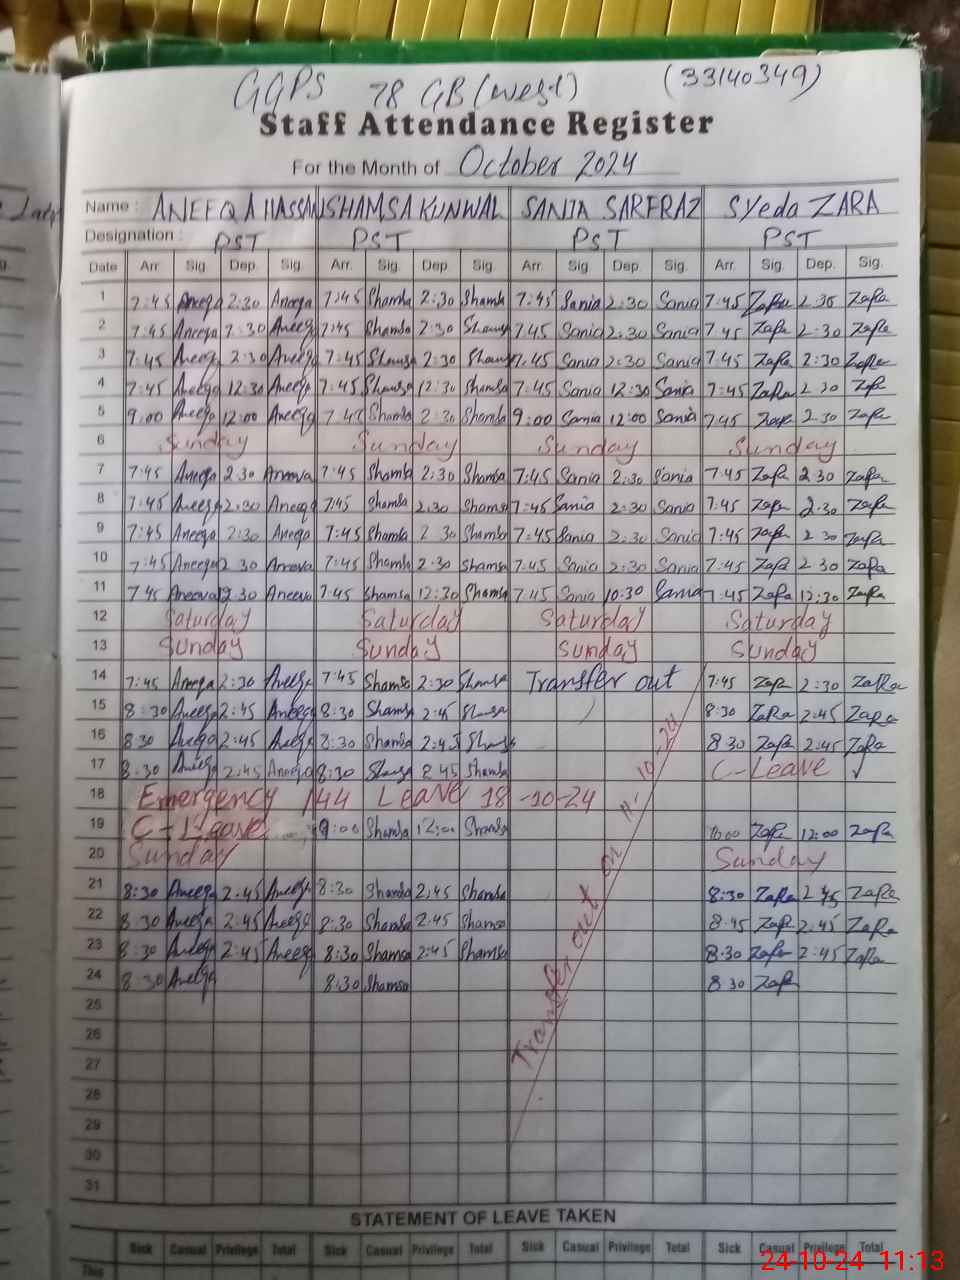 GGPS 78 GB (west) (33140349)
Staff Attendance Register
For the Month of October 2024
Name : ANEEQA HASSAN SHAMSA KUNWAL SANIA SARFRAZ SYeda ZARA
Designation : PST PST PST PST
Date Arr. Sig. Dep. Sig. Arr. Sig. Dep. Sig. Arr. Sig Dep. Sig. Arr. Sig. Dep. Sig.
1 7:45 Aneeqa 2:30 Aneeqa 7:45 Shamsa 2:30 Shamsa 7:45 Sania 2:30 Sania 7:45 ZaRa 2:30 ZaRa
2 7:45 Aneeqa 2:30 Aneeqa 7:45 Shamsa 2:30 Shamsa 7:45 Sania 2:30 Sania 7:45 ZaRa 2:30 ZaRa
3 7:45 Aneeqa 2:30 Aneeqa 7:45 Shamsa 2:30 Shamsa 7:45 Sania 2:30 Sania 7:45 ZaRa 2:30 ZaRa
4 7:45 Aneeqa 12:30 Aneeqa 7:45 Shamsa 12:30 Shamsa 7:45 Sania 12:30 Sania 7:45 ZaRa 2:30 ZaRa
5 9:00 Aneeqa 12:00 Aneeqa 7:45 Shamsa 2:30 Shamsa 9:00 Sania 12:00 Sania 7:45 ZaRa 2:30 ZaRa
6 Sunday Sunday Sunday Sunday
7 7:45 Aneeqa 2:30 Aneeqa 7:45 Shamsa 2:30 Shamsa 7:45 Sania 2:30 Sania 7:45 ZaRa 2:30 ZaRa
8 7:45 Aneeqa 2:30 Aneeqa 7:45 Shamsa 2:30 Shamsa 7:45 Sania 2:30 Sania 7:45 ZaRa 2:30 ZaRa
9 7:45 Aneeqa 2:30 Aneeqa 7:45 Shamsa 2 30 Shamsa 7:45 Sania 2:30 Sania 7:45 ZaRa 2 30 ZaRa
10 7:45 Aneeqa 2 30 Aneeqa 7:45 Shamsa 2:30 Shamsa 7:45 Sania 2:30 Sania 7:45 ZaRa 2 30 ZaRa
11 7 45 Aneeqa 2 30 Aneeqa 7:45 Shamsa 12:30 Shamsa 7:45 Sania 10:30 Sania 7:45 ZaRa 12:30 ZaRa
12 Saturday Saturday Saturday Saturday
13 Sunday Sunday Sunday Sunday
14 7:45 Aneeqa 2:30 Aneeqa 7:45 Shamsa 2:30 Shamsa Transfer out 7:45 ZaRa 2:30 ZaRa
15 8:30 Aneeqa 2:45 Aneeqa 8:30 Shamsa 2:45 Shamsa 8:30 ZaRa 2:45 ZaRa
16 8 30 Aneeqa 2:45 Aneeqa 8:30 Shamsa 2:45 Shamsa 8 30 ZaRa 2:45 ZaRa
17 8:30 Aneeqa 2:45 Aneeqa 8:30 Shamsa 2 45 Shamsa C-Leave
18 Emergency 144 Leave 18-10-24
19 C-Leave 9:00 Shamsa 12:00 Shamsa 10:00 ZaRa 12:00 ZaRa
20 Sunday Sunday
21 8:30 Aneeqa 2:45 Aneeqa 8:30 Shamsa 2:45 Shamsa 8:30 ZaRa 2 45 ZaRa
22 8:30 Aneeqa 2:45 Aneeqa 8:30 Shamsa 2:45 Shamsa 8:45 ZaRa 2:45 ZaRa
23 8:30 Aneeqa 2:45 Aneeqa 8:30 Shamsa 2:45 Shamsa 8:30 ZaRa 2:45 ZaRa
24 8:30 Aneeqa 8:30 Shamsa 8 30 ZaRa
Transfer out on 11-10-24
25
26
27
28
29
30
31
STATEMENT OF LEAVE TAKEN
Sick Casual Privilege Total Sick Casual Privilege Total Sick Casual Privilege Total Sick Casual Privilege Total
This
24-10-24 11:13